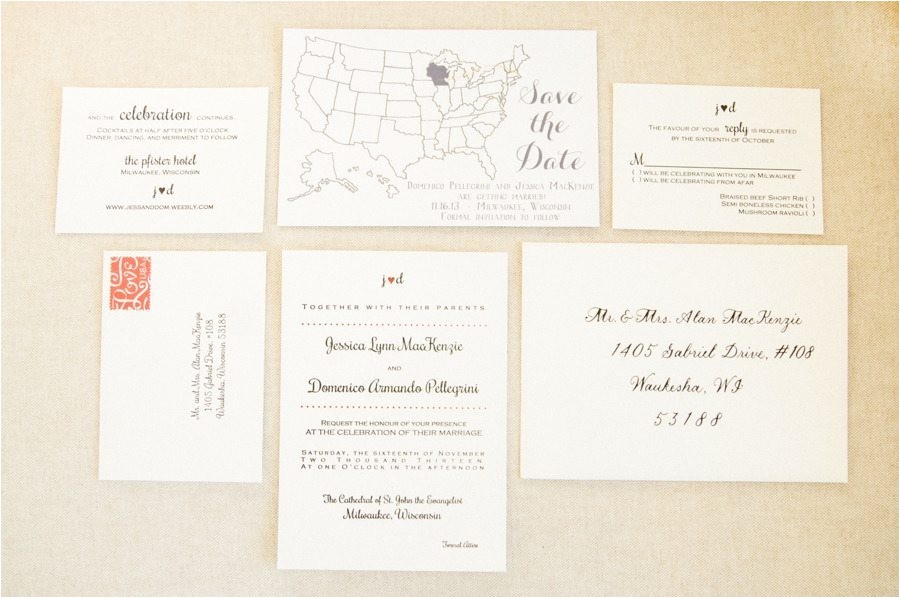 AND THE celebration CONTINUES
COCKTAILS AT HALF AFTER FIVE O'CLOCK
DINNER, DANCING, AND MERRIMENT TO FOLLOW
the pfister hotel
MILWAUKEE, WISCONSIN
j♥d
WWW.JESSANDDOM.WEEBLY.COM
Save
the
Date
DOMENICO PELLEGRINI AND JESSICA MACKENZIE
ARE GETTING MARRIED!
11.16.13 - MILWAUKEE, WISCONSIN
FORMAL INVITATION TO FOLLOW
j♥d
THE FAVOUR OF YOUR reply IS REQUESTED
BY THE SIXTEENTH OF OCTOBER
M
( ) WILL BE CELEBRATING WITH YOU IN MILWAUKEE
( ) WILL BE CELEBRATING FROM AFAR
BRAISED BEEF SHORT RIB ( )
SEMI BONELESS CHICKEN ( )
MUSHROOM RAVIOLI ( )
Love
USA
Mr. and Mrs. Alan MacKenzie
1405 Gabriel Drive, #108
Waukesha, Wisconsin 53188
j♥d
TOGETHER WITH THEIR PARENTS
Jessica Lynn MacKenzie
AND
Domenico Armando Pellegrini
REQUEST THE HONOUR OF YOUR PRESENCE
AT THE CELEBRATION OF THEIR MARRIAGE
SATURDAY, THE SIXTEENTH OF NOVEMBER
TWO THOUSAND THIRTEEN
AT ONE O'CLOCK IN THE AFTERNOON
The Cathedral of St. John the Evangelist
Milwaukee, Wisconsin
Formal Attire
Mr. & Mrs. Alan MacKenzie
1405 Gabriel Drive, #108
Waukesha, WI
53188